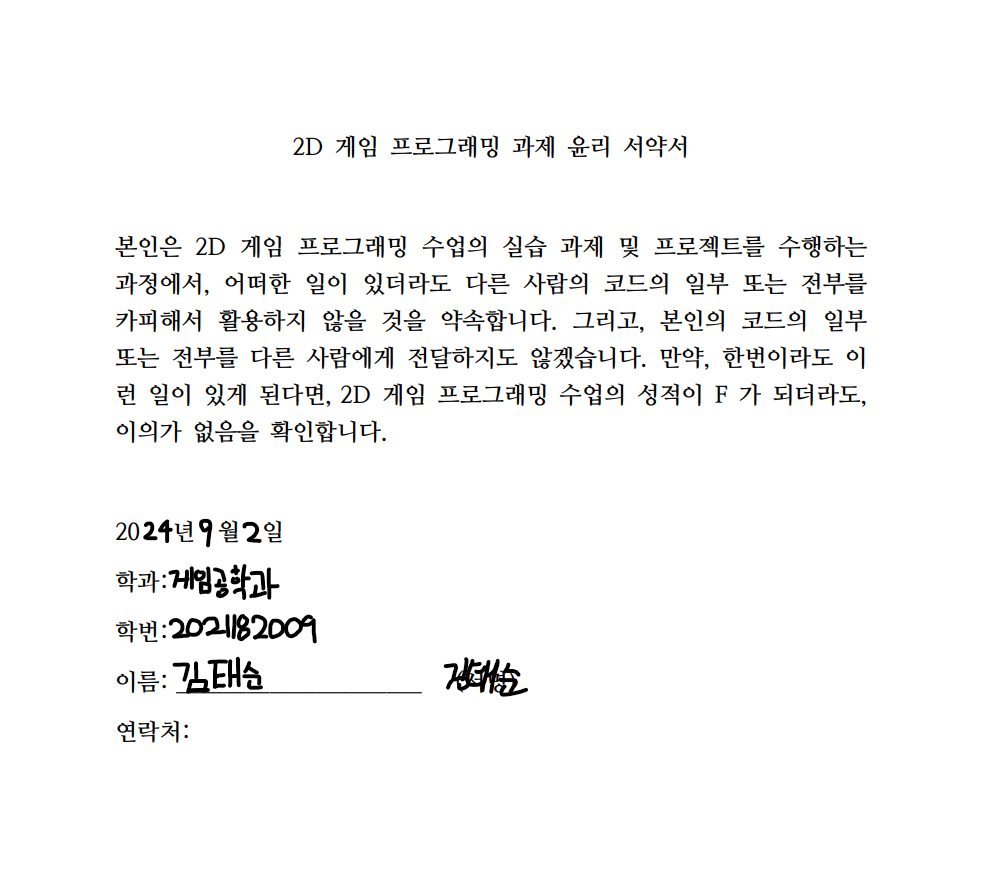 2D 게임 프로그래밍 과제 윤리 서약서
본인은 2D 게임 프로그래밍 수업의 실습 과제 및 프로젝트를 수행하는
과정에서, 어떠한 일이 있더라도 다른 사람의 코드의 일부 또는 전부를
카피해서 활용하지 않을 것을 약속합니다. 그리고, 본인의 코드의 일부
또는 전부를 다른 사람에게 전달하지도 않겠습니다. 만약, 한번이라도 이
런 일이 있게 된다면, 2D 게임 프로그래밍 수업의 성적이 F 가 되더라도,
이의가 없음을 확인합니다.
2024년 9월 2일
학과: 게임공학과
학번: 202182009
이름: 김태순 김태순 (서명)
연락처: